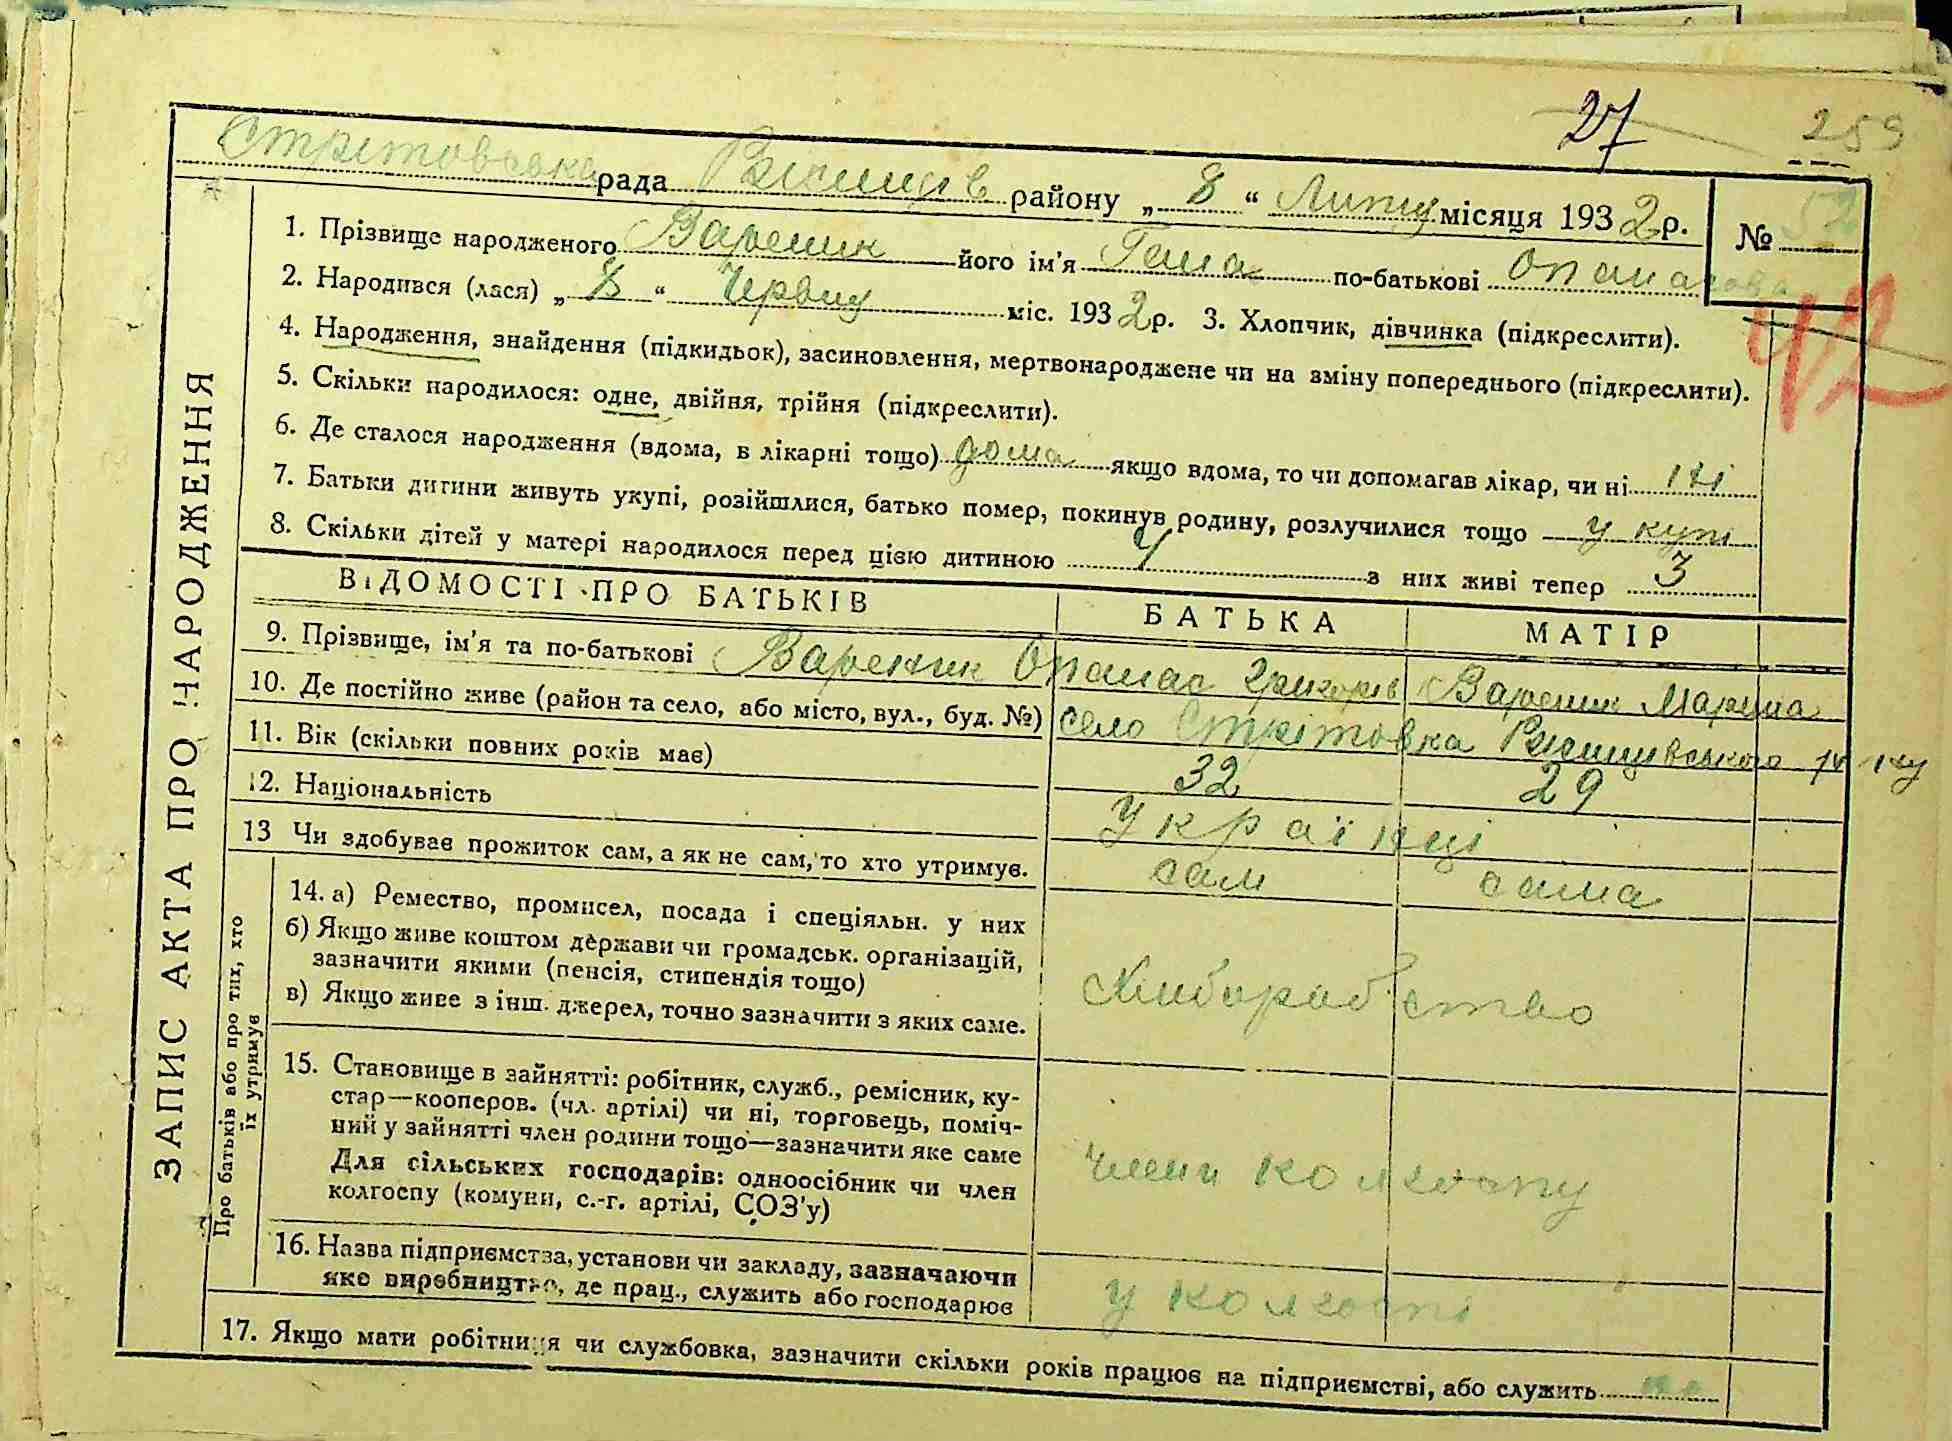 27 259
Стрітовська рада Ржищів району „ 8 “ Липцу місяця 1932 р. № 52
1. Прізвище народженого Вареник його ім'я Гана по-батькові Опанасова
2. Народився (лася) „ 8 “ Червцу міс. 1932 р. 3. Хлопчик, дівчинка (підкреслити).
4. Народження, знайдення (підкидьок), засиновлення, мертвонароджене чи на зміну попереднього (підкреслити).
5. Скільки народилося: одне, двійня, трійня (підкреслити).
6. Де сталося народження (вдома, в лікарні тощо) дома якщо вдома, то чи допомагав лікар, чи ні ні
7. Батьки дитини живуть укупі, розійшлися, батько помер, покинув родину, розлучилися тощо у купі
8. Скільки дітей у матері народилося перед цією дитиною 4 з них живі тепер 3
ВІДОМОСТІ ПРО БАТЬКІВ БАТЬКА МАТІР
9. Прізвище, ім'я та по-батькові Вареник Опанас Григорів Вареник Марина
10. Де постійно живе (район та село, або місто, вул., буд. №) село Стрітовка Ржищівського
11. Вік (скільки повних років має) 32 29
12. Національність Українці
13 Чи здобуває прожиток сам, а як не сам, то хто утримує. сам сама
14. а) Ремество, промисел, посада і спеціяльн. у них
б) Якщо живе коштом держави чи громадськ. організацій,
зазначити якими (пенсія, стипендія тощо)
в) Якщо живе з інш. джерел, точно зазначити з яких саме.
Хлiборобство
15. Становище в зайнятті: робітник, служб., ремісник, ку-
стар—кооперов. (чл. артілі) чи ні, торговець, поміч-
ний у зайнятті член родини тощо—зазначити яке саме
Для сільських господарів: одноосібник чи член
колгоспу (комуни, с.-г. артілі, СОЗ'у)
члени колгоспу
16. Назва підприємства, установи чи закладу, зазначаючи
яке виробництво, де прац., служить або господарює
у колгоспі
17. Якщо мати робітниця чи службовка, зазначити скільки років працює на підприємстві, або служить
ЗАПИС АКТА ПРО НАРОДЖЕННЯ
Про батьків або про тих, хто
їх утримує